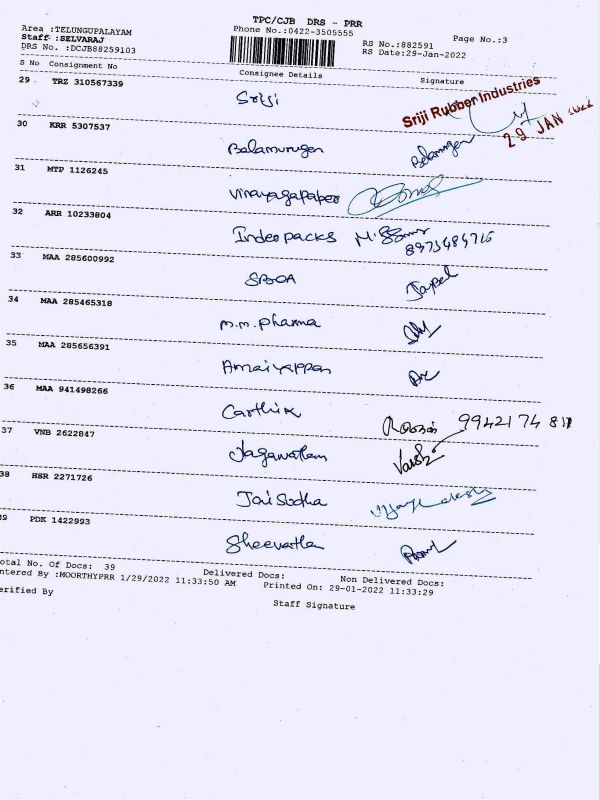 TPC/CJB DRS - PRR
Area :TELUNGUPALAYAM Phone No.:0422-3505555 Page No.:3
Staff :SELVARAJ RS No.:882591
DRS No. :DCJB88259103 RS Date:29-Jan-2022
S No Consignment No Consignee Details Signature
29 TRZ 310567339
Sriji Sriji Rubber Industries
29 JAN 2022
30 KRR 5307537
Balamurugan Balamurugan
31 MTP 1126245
Vinayagapaper
32 ARR 10233804
Indeo packs
8973484716
33 MAA 285600992
SBOA
34 MAA 285465318
m.m. pharma
35 MAA 285656391
Amaiyappan
36 MAA 941498266
Carthik 9942174811
37 VNB 2622847
Jaganathan
38 HSR 2271726
Jai Sudha
39 PDK 1422993
otal No. Of Docs: 39 Delivered Docs: Non Delivered Docs:
ntered By :MOORTHYPRR 1/29/2022 11:33:50 AM Printed On: 29-01-2022 11:33:29
erified By Staff Signature